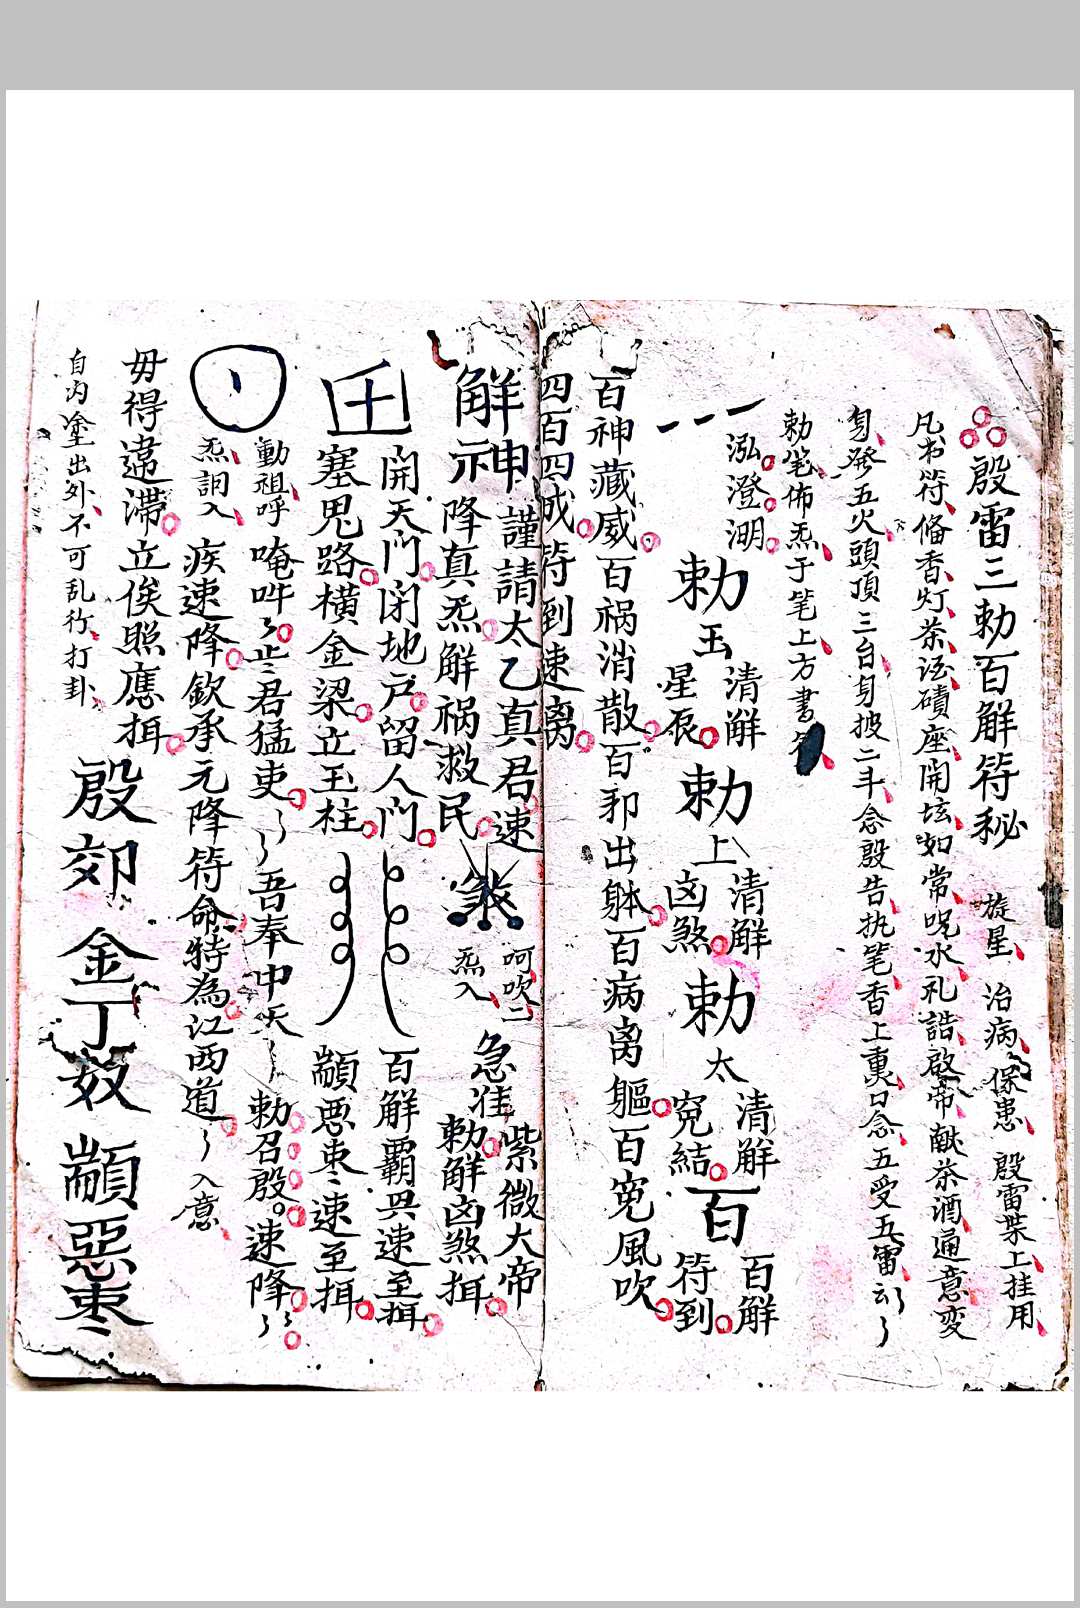 殷雷三勅百解符秘 旋星 治病 保患 殷雷架上挂用
凡书符俻香灯茶酒磧座開坛如常呪水礼誥啟帝献茶酒通意变
身發五火頭頂三台身披二斗念殷告执笔香上熏口念五受五雷云
勅笔佈炁于笔上方書符
泓澄溯
勅
玉清解星辰
勅
上清解凶煞
勅
太清解寃結
百
百解符到
百神藏威百祸消散百邪出躰百病离軀百寃風吹
四百四成符到速离
解
申謹請太乙真君速
示降真炁解祸救民
呵吹二
炁入
急准
紫微大帝
勅解凶煞揖
開天门闭地户留人门
塞鬼路横金梁立玉柱
百解霸㒷速至揖
顓恶枣速至揖
動祖呼
唵吽
君猛吏 吾奉中天 勅召殷速降
炁詞入
疾速降欽承元降符命特為江西道 入意
毋得違滯立俟照應揖
殷郊金丁奴顓惡枣
自内塗出外不可乱行打卦